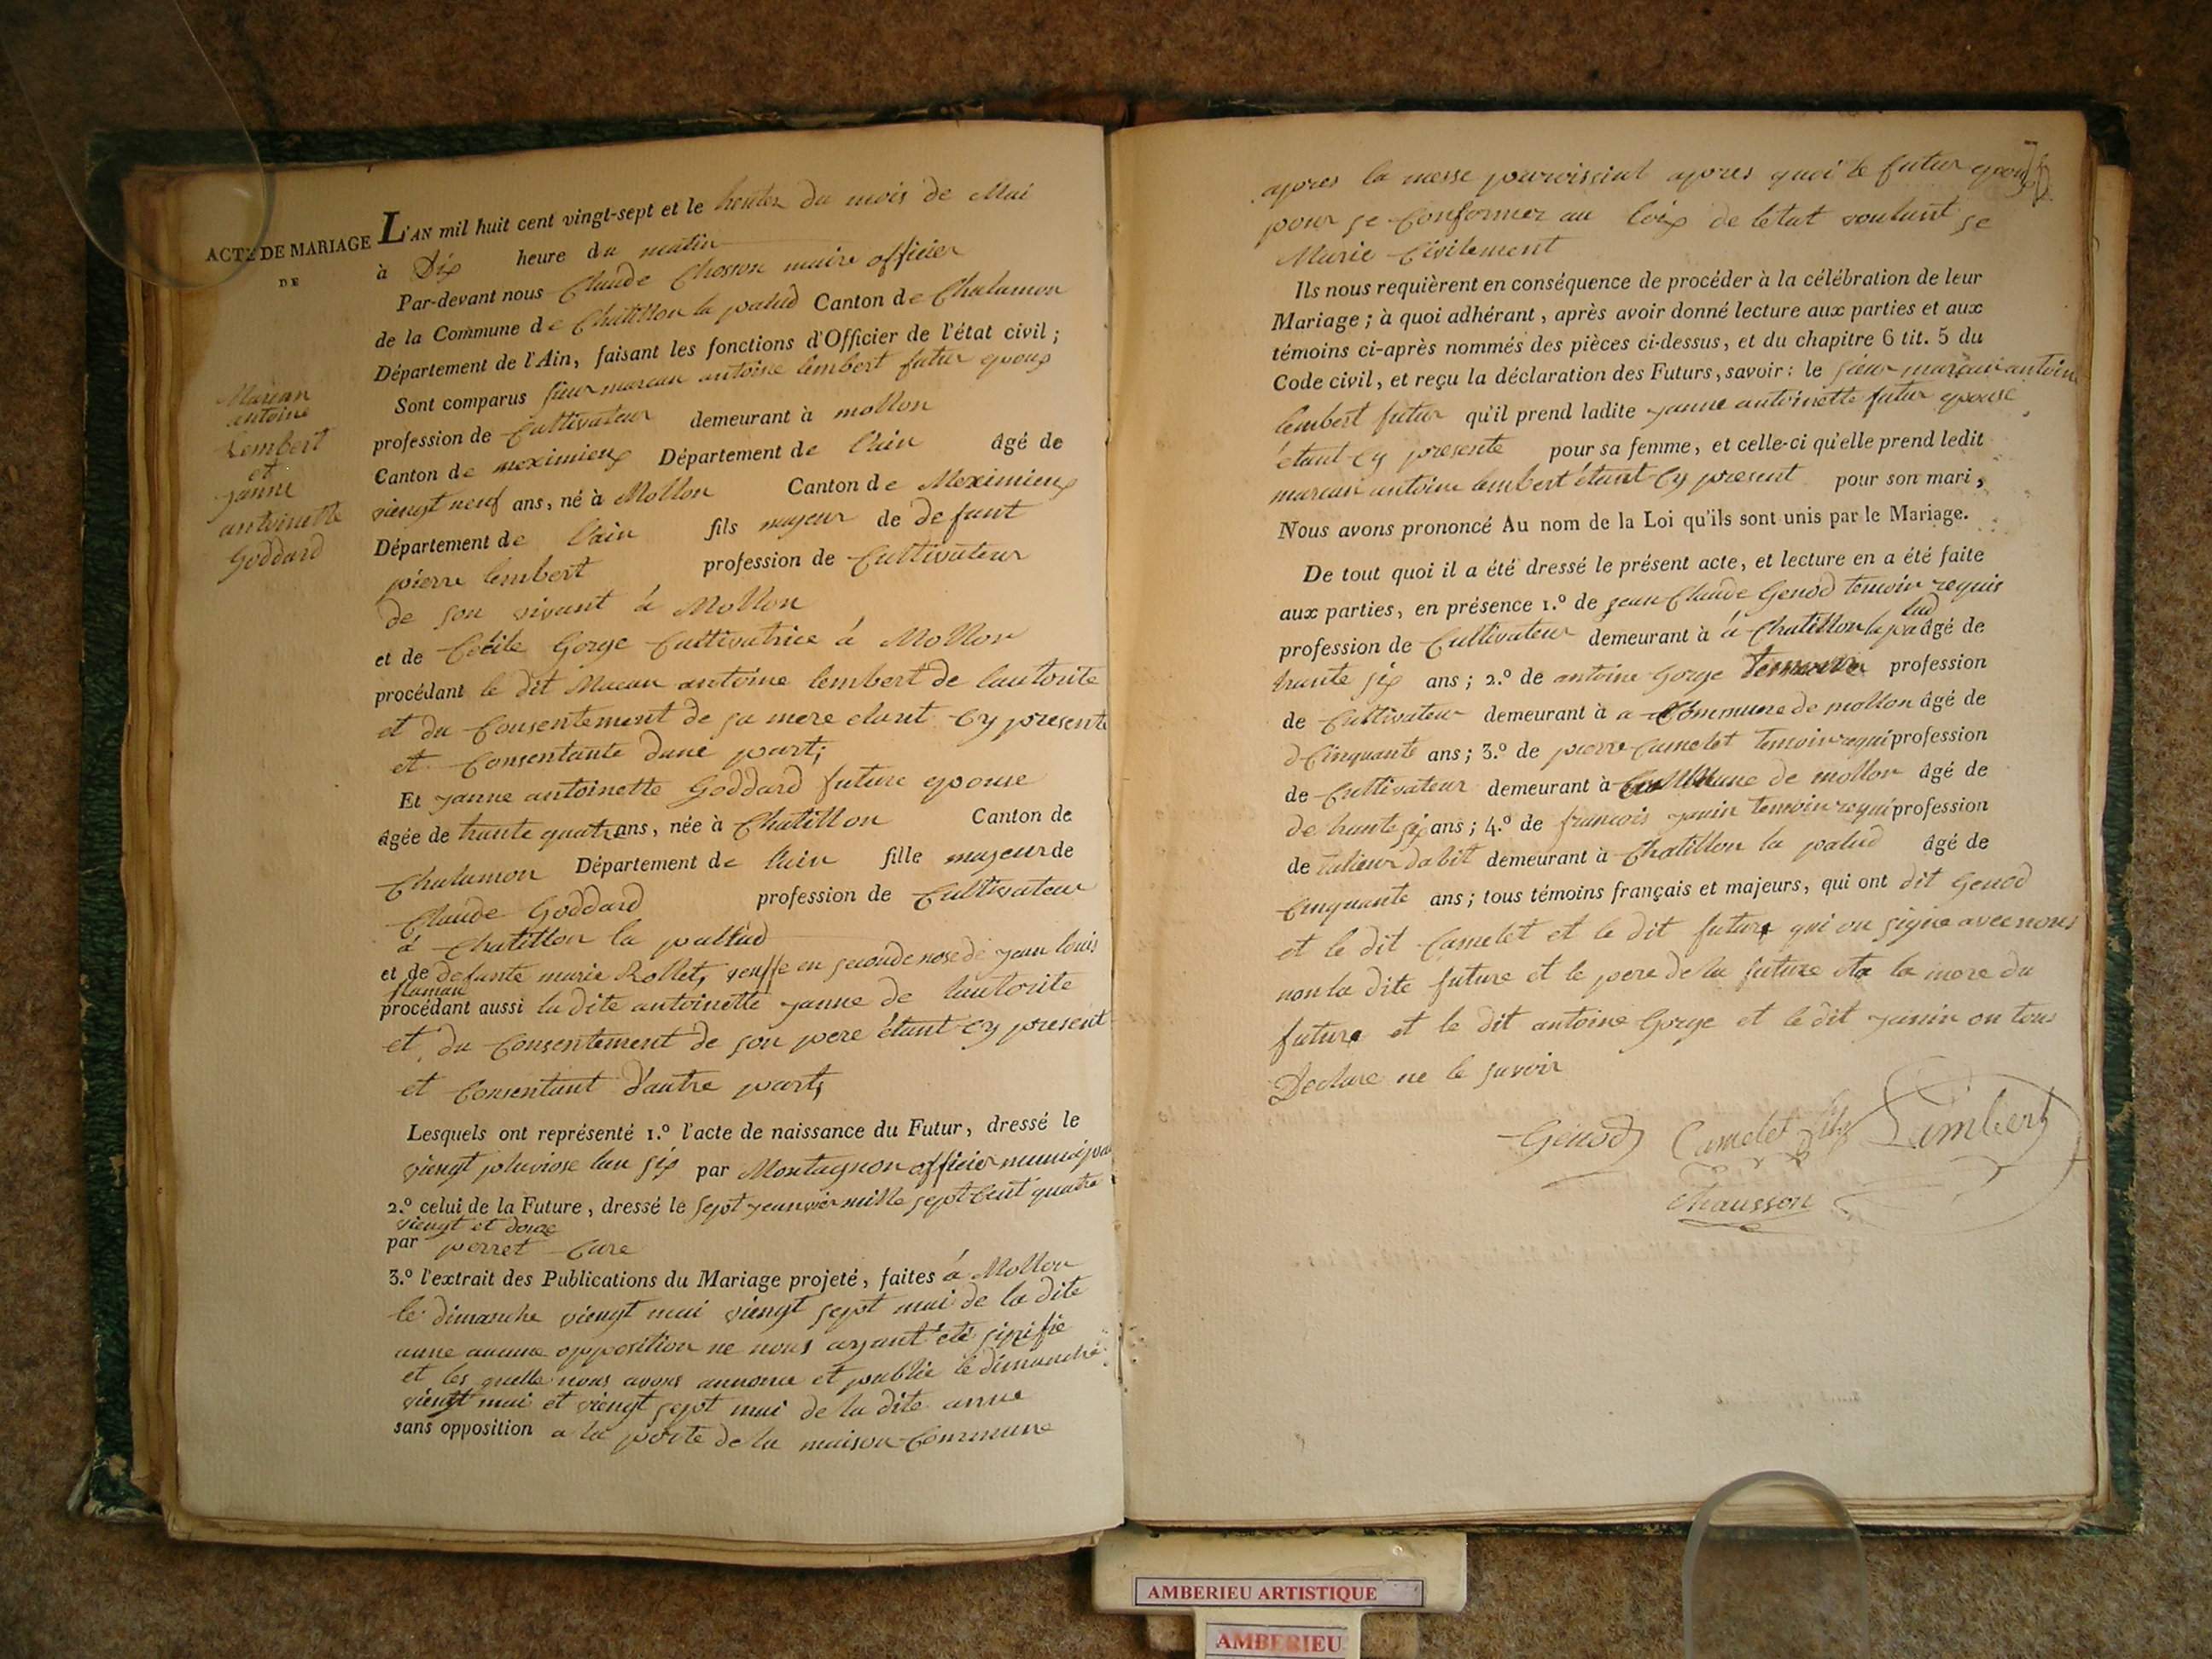 ACTE DE MARIAGE
DE
Marian
antoine
Lembert
et
janne
antoinette
Goddard
L'AN mil huit cent vingt-sept et le trente du mois de Mai
à Dix heure du matin
Par-devant nous Claude Chosson maire officier
de la Commune de Chatillon la palud Canton de Chalamon
Département de l'Ain, faisant les fonctions d'Officier de l'état civil ;
Sont comparus sieur marcau antoine lembert futur epoux
profession de Cultivateur demeurant à mollon
Canton de meximieux Département de l'ain âgé de
viengt neuf ans, né à Mollon Canton de Meximieux
Département de l'ain fils majeur de defunt
pierre lembert profession de Cultivateur
de son vivant à Mollon
et de Cécile Gorge Cultivatrice à Mollon
procédant le dit Macau antoine lembert de lautorite
et du Consentement de sa mere etant Cy presente
et Consentante dune part;
Et janne antoinette Goddard future epouse
âgée de trante quatre ans, née à Chatillon Canton de
Chalamon Département de l'ain fille majeur de
Claude Goddard profession de Cultivateur
à Chatillon la pallud
et de defunte marie Rollet, veuffe en seconde nose de jean louis
flaman
procédant aussi la dite antoinette janne de lautorite
et du Consentement de son pere étant Cy present
et Consentant d'autre part,
Lesquels ont représenté 1.º l'acte de naissance du Futur, dressé le
viengt pluviose lan six par Montagnon officier municipal
2.º celui de la Future, dressé le sept jeanvier mille sept Cent quatre
viengt et douze
par perret Cure
3.º l'extrait des Publications du Mariage projeté, faites à Mollon
le dimanche viengt mai viengt sept mai de la dite
anne aucune opposition ne nous ayant été sinifie
et les quelle nous avons annonce et publie le dimanche
viengt mai et viengt sept mai de la dite anne
sans opposition a la porte de la maison Commune
apres la messe parroissial apres quoi le futur epoux
pour se Conformer au loix de letat voulant se
Marie Civilement
Ils nous requièrent en conséquence de procéder à la célébration de leur
Mariage ; à quoi adhérant, après avoir donné lecture aux parties et aux
témoins ci-après nommés des pièces ci-dessus, et du chapitre 6 tit. 5 du
Code civil, et reçu la déclaration des Futurs, savoir : le sieur marcau antoine
lembert futur qu'il prend ladite janne antoinette futur epouse
étant Cy presente pour sa femme, et celle-ci qu'elle prend ledit
marcau antoine lembert étant Cy present pour son mari,
Nous avons prononcé Au nom de la Loi qu'ils sont unis par le Mariage.
De tout quoi il a été dressé le présent acte, et lecture en a été faite
aux parties, en présence 1.º de jean Claude Genod temoin requis
profession de Cultivateur demeurant à à Chatillon la palud âgé de
trante six ans ; 2.º de antoine Gorge temoin profession
de Cultivateur demeurant à a Commune de mollon âgé de
d Cinquante ans ; 3.º de pierre Camelet temoin requi profession
de Cultivateur demeurant à Commune de mollon âgé de
de trante six ans ; 4.º de francois janin temoin requi profession
de talieur dabit demeurant à Chatillon la palud âgé de
Cinquante ans ; tous témoins français et majeurs, qui ont dit Genod
et le dit Camelet et le dit futur qui on signe avec nous
non la dite future et le pere de la future et la mere du
future et le dit antoine Gorge et le dit janin on tous
Declare ne le savoir
Genod Camelet fils Lambert
Chausson
AMBERIEU ARTISTIQUE
AMBERIEU